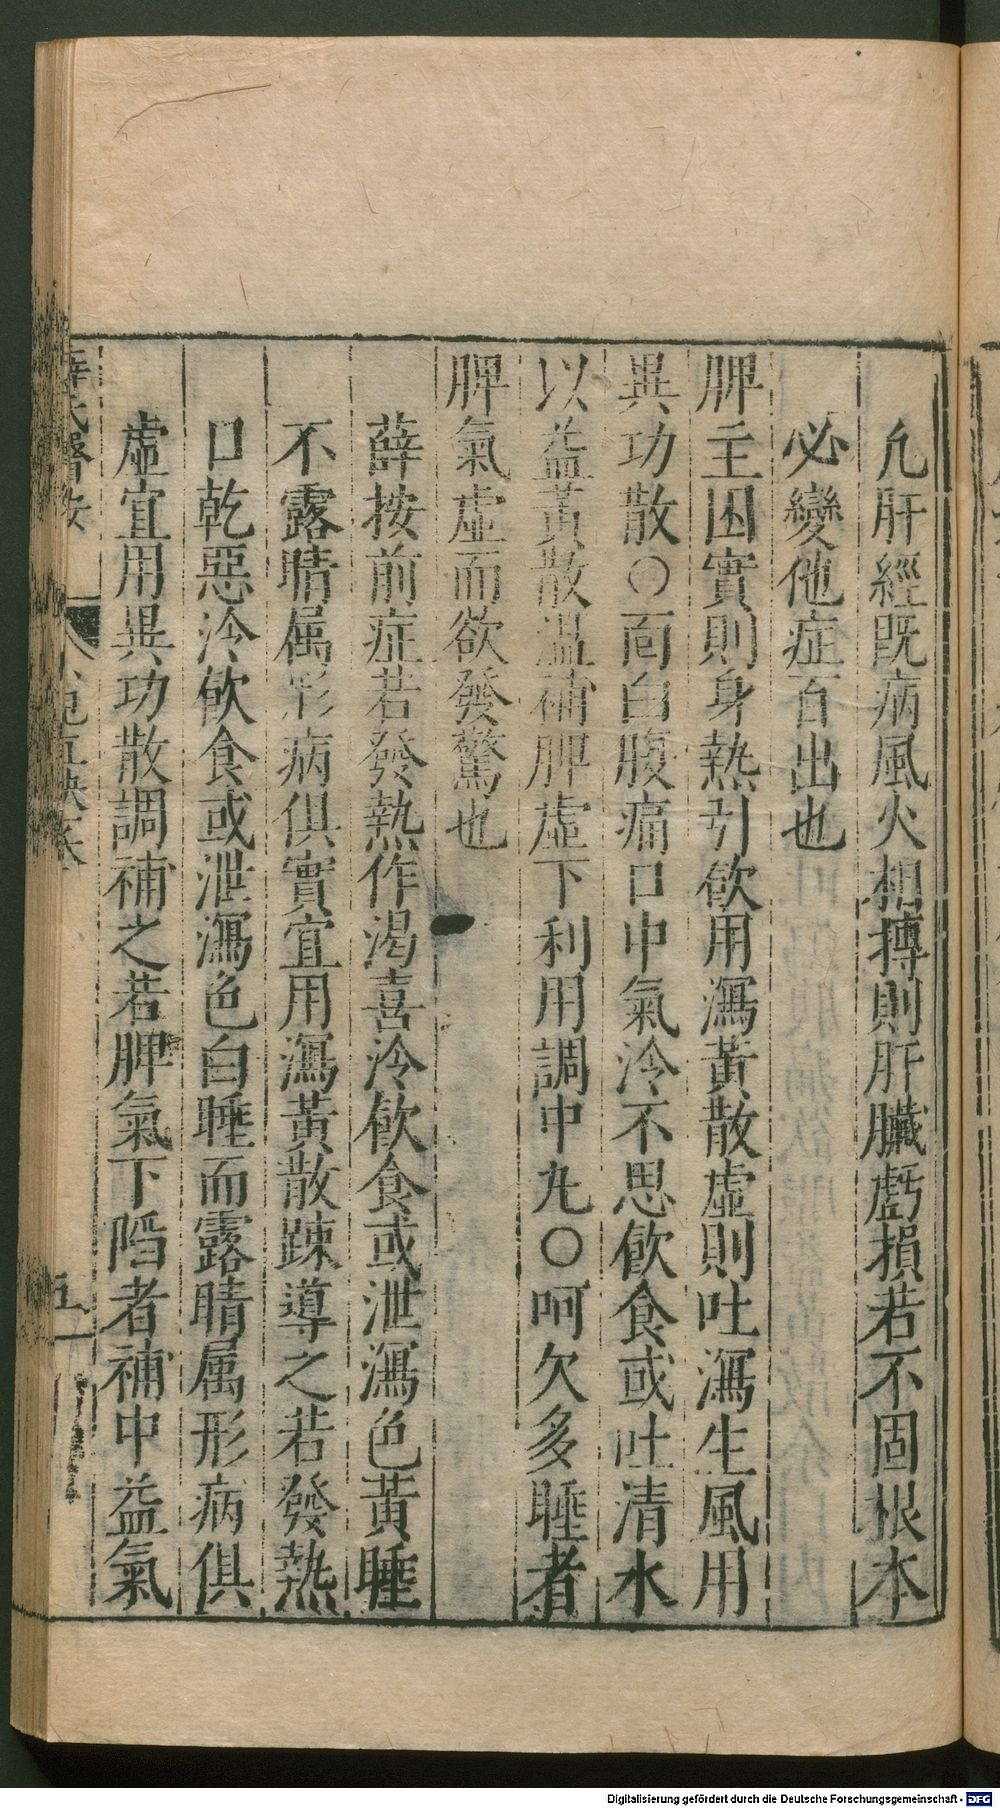 凢肝經既病風火相摶則肝臟虧損若不固根本
必變他症百出也
脾主困實則身熱引飲用瀉黃散虛則吐瀉生風用
異功散〇面白腹痛口中氣冷不思飲食或吐清水
以益黃散溫補脾虛下利用調中丸〇呵欠多睡者
脾氣虛而欲發驚也
薛按前症若發熱作渴喜冷飲食或泄瀉色黃睡
不露睛属形病俱實宜用瀉黃散踈導之若發熱
口乾惡冷飲食或泄瀉色白睡而露睛属形病俱
虛宜用異功散調補之若脾氣下陷者補中益氣
薛氏醫按
五
Digitalisierung gefördert durch die Deutsche Forschungsgemeinschaft - DFG